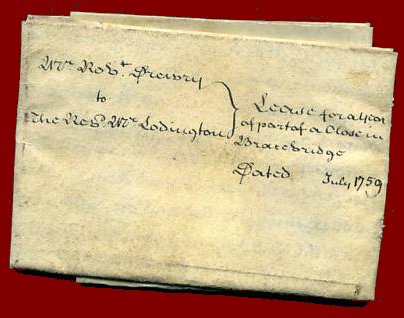 Mr. Robt. Drewry
to
The Revd. Mr. Lodington
Lease for a year
of part of a Close in
Bracebridge
Dated July 1759